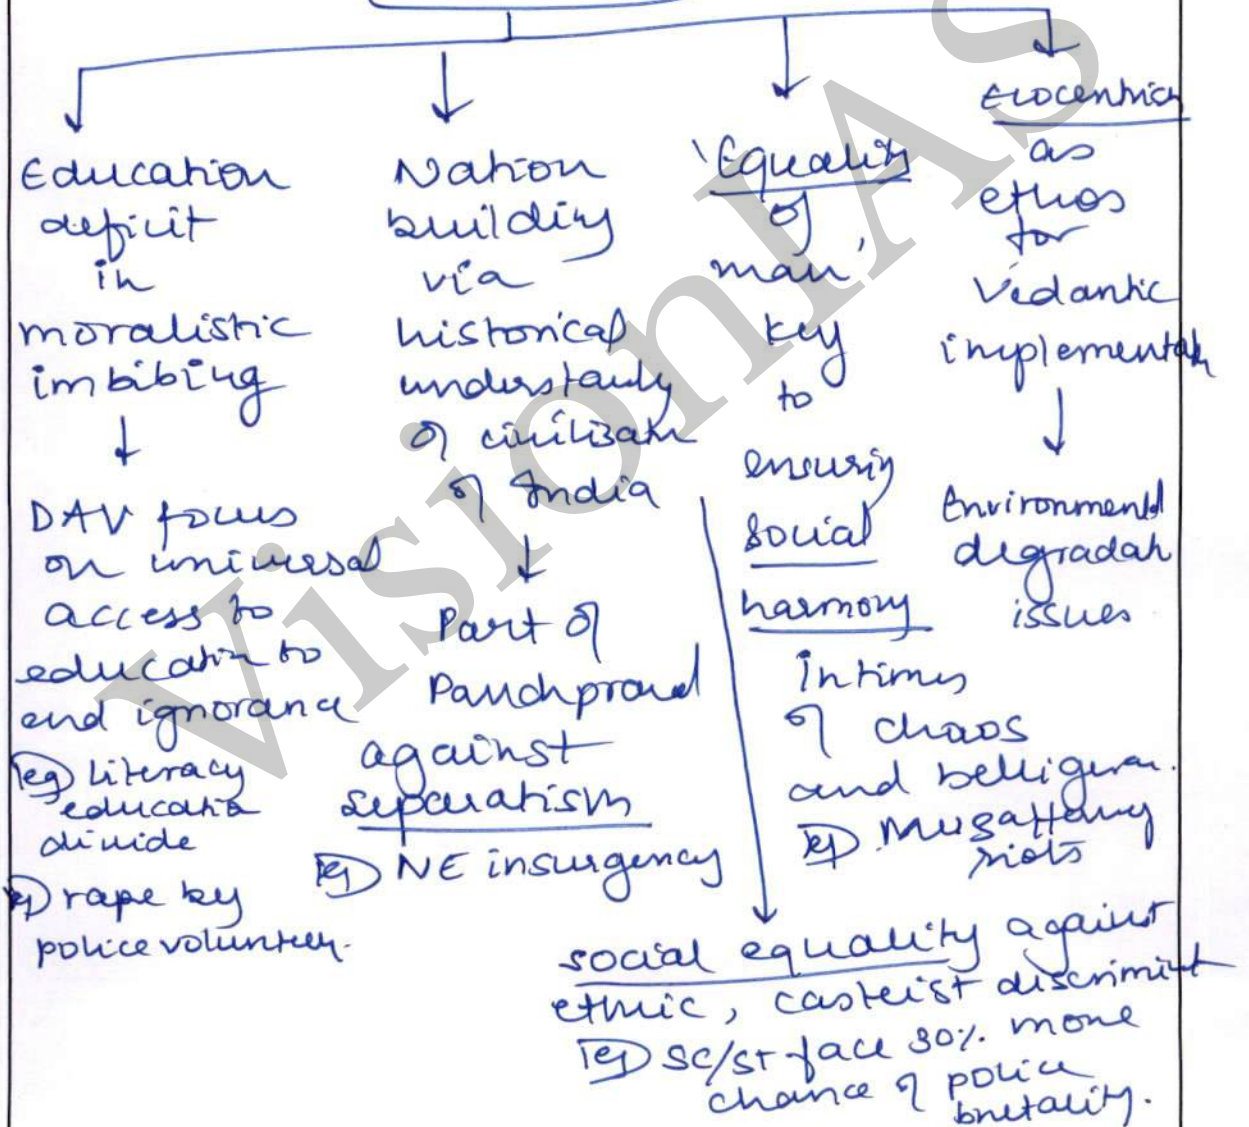 Education
deficit
in
moralistic
imbibing
DAV focus
on universal
access to
education to
end ignorance
eg literacy
education
divide
eg rape by
police volunteer.
Nation
building
via
historical
understandg
of civilizatn
of India
Part of
Panchpran
against
separatism
eg NE insurgency
'Equality
of
man'
key
to
ensuring
social
harmony
In times
of chaos
and belligeran.
eg Muzaffarnag
riots
social equality against
ethnic, casteist discriminat
eg SC/ST face 30% more
chance of police
brutality.
Ecocentrism
as
ethos
for
Vedantic
implementatn
Environmentl
degradatn
issues
VisionIAS